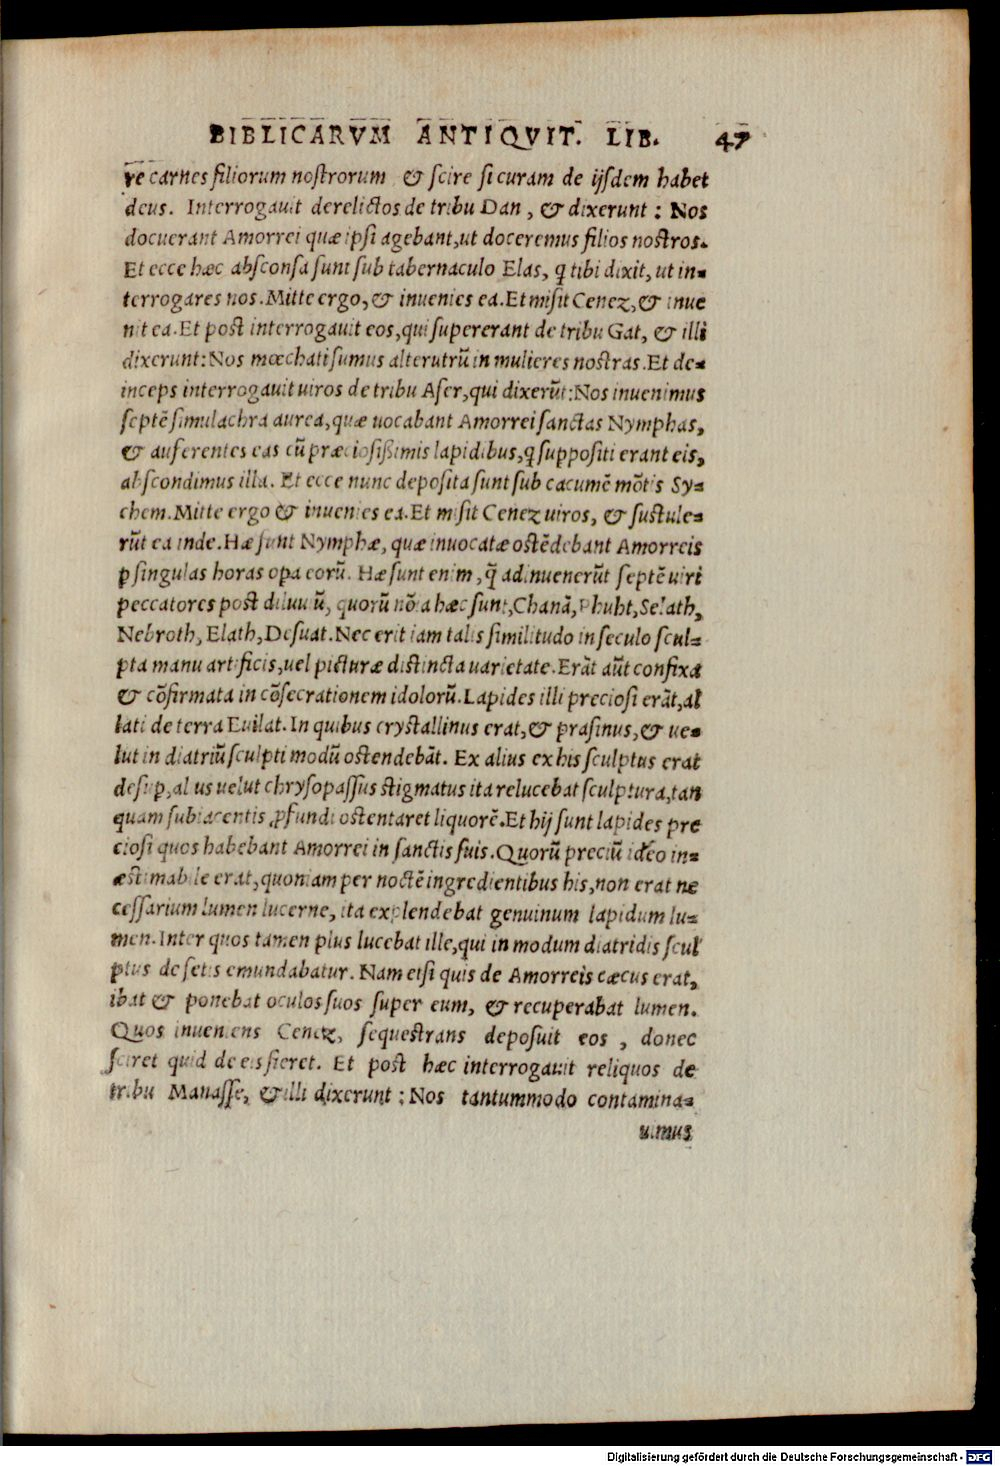 BIBLICARVM ANTIQVIT. LIB. 47
re carnes filiorum nostrorum & scire si curam de ijsdem habet
deus. Interrogauit derelictos de tribu Dan, & dixerunt: Nos
docuerant Amorrei quæ ipsi agebant, ut doceremus filios nostros.
Et ecce hæc absconsa sunt sub tabernaculo Elas, q̃ tibi dixit, ut in-
terrogares nos. Mitte ergo, & inuenies ea. Et misit Cenez, & inue
nit ea. Et post interrogauit eos, qui supererant de tribu Gat, & illi
dixerunt: Nos mœchati sumus alterutrũ in mulieres nostras. Et de-
inceps interrogauit uiros de tribu Aser, qui dixerũt: Nos inuenimus
septẽ simulachra aurea, quæ uocabant Amorrei sanctas Nymphas,
& auferentes eas cũ præciosißimis lapidibus, q̃ suppositi erant eis,
abscondimus illa. Et ecce nunc deposita sunt sub cacumẽ mõtis Sy-
chem. Mitte ergo & inuenies ea. Et misit Cenez uiros, & sustule-
rũt ea inde. Hæ sunt Nymphæ, quæ inuocatæ ostẽdebant Amorreis
ꝑ singulas horas opa eorũ. Hæ sunt enim, q̃ adinuenerũt septẽ uiri
peccatores post diluuiũ, quorũ nõa hæc sunt, Chanã, Phuht, Selath,
Nebroth, Elath, Desuat. Nec erit iam talis similitudo in seculo scul-
pta manu artificis, uel picturæ distincta uarietate. Erãt aũt confixa
& cõfirmata in cõsecrationem idolorũ. Lapides illi preciosi erãt, al
lati de terra Euilat. In quibus crystallinus erat, & prasinus, & ue-
lut in diatriũ sculpti modũ ostendebãt. Ex alius ex his sculptus erat
desup, alius uelut chrysopassus stigmatus ita relucebat sculptura, tan
quam subiacentis ꝓfundi ostentaret liquorẽ. Et hij sunt lapides pre
ciosi quos habebant Amorrei in sanctis suis. Quorũ preciũ ideo in-
æstimabile erat, quoniam per noctẽ ingredientibus his, non erat ne
cessarium lumen lucerne, ita explendebat genuinum lapidum lu-
men. Inter quos tamen plus lucebat ille, qui in modum diatridis scul
ptus de setis emundabatur. Nam etsi quis de Amorreis cæcus erat,
ibat & ponebat oculos suos super eum, & recuperabat lumen.
Quos inueniens Cenez, sequestrans deposuit eos, donec
sciret quid de eis fieret. Et post hæc interrogauit reliquos de
tribu Manasse, & illi dixerunt: Nos tantummodo contamina-
uimus
Digitalisierung gefördert durch die Deutsche Forschungsgemeinschaft - DFG